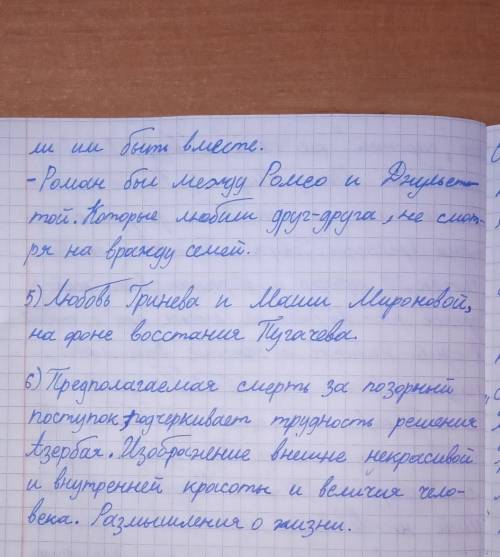 ли им быть вместе.
- Роман был между Ромео и Джульет-
той. Которые любили друг-друга, не смот-
ря на вражду семей.
5) Любовь Гринева и Маши Мироновой,
на фоне восстания Пугачева.
6) Предполагаемая смерть за позорный
поступок, подчеркивает трудность решения
Азербая. Изображение внешне некрасивой
и внутренней красоты и величия чело-
века. Размышления о жизни.